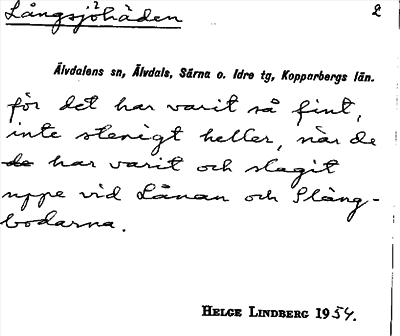 Långsjöhåden
2
Älvdalens sn, Älvdals, Särna o. Idre tg, Kopparbergs län.
för det har varit så fint,
inte stenigt heller, när de
de har varit och slagit
uppe vid Lånan och Slång-
bodarna.
HELGE LINDBERG 1954.